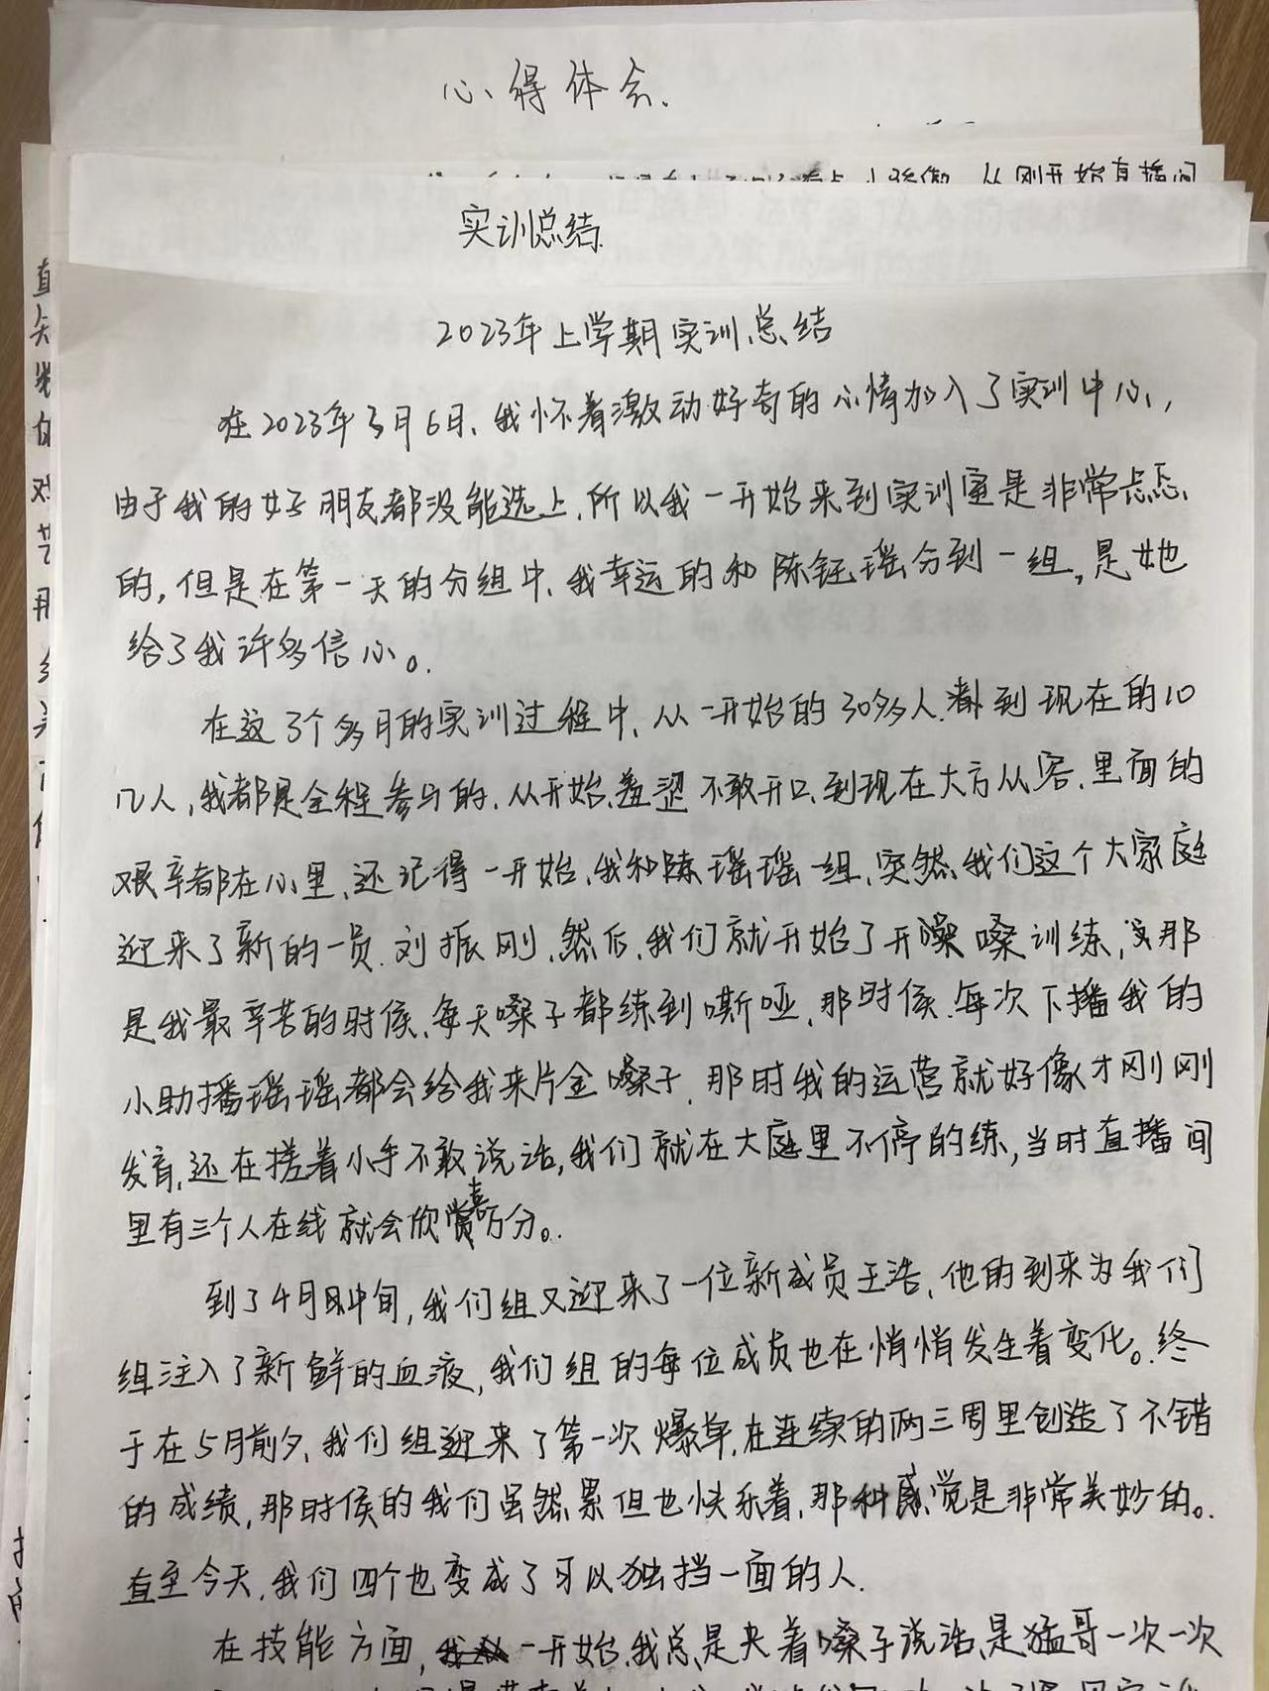 心得体会.
从刚开始直播间
实训总结.
2023年上学期实训总结
在2023年3月6日、我怀着激动好奇的心情加入了实训中心,
由于我的好朋友都没能选上,所以我一开始来到实训室是非常忐忑
的,但是在第一天的分组中、我幸运的和陈钰瑶分到一组,是她
给了我许多信心。
在这3个多月的实训过程中、从一开始的30多人、到现在的10
几人,我都是全程参与的、从开始羞涩不敢开口、到现在大方从容、里面的
艰辛都在心里、还记得一开始、我和陈瑶瑶一组、突然、我们这个大家庭
迎来了新的一员、刘振刚、然后、我们就开始了开嗓训练,那
是我最辛苦的时候、每天嗓子都练到嘶哑、那时候、每次下播我的
小助播瑶瑶都会给我来片金嗓子、那时我的运营就好像才刚刚
发育、还在搓着小手不敢说话,我们就在大庭里不停的练,当时直播间
里有三个人在线就会欣喜万分。
到了4月中旬,我们组又迎来了一位新成员王浩、他的到来为我们
组注入了新鲜的血液,我们组的每位成员也在悄悄发生着变化。终
于在5月前夕、我们组迎来了第一次爆单、在连续的两三周里创造了不错
的成绩,那时候的我们虽然累但也快乐着、那种感觉是非常美妙的。
直至今天、我们四个也变成了可以独挡一面的人.
在技能方面,一开始、我总是夹着嗓子说话、是猛哥一次一次